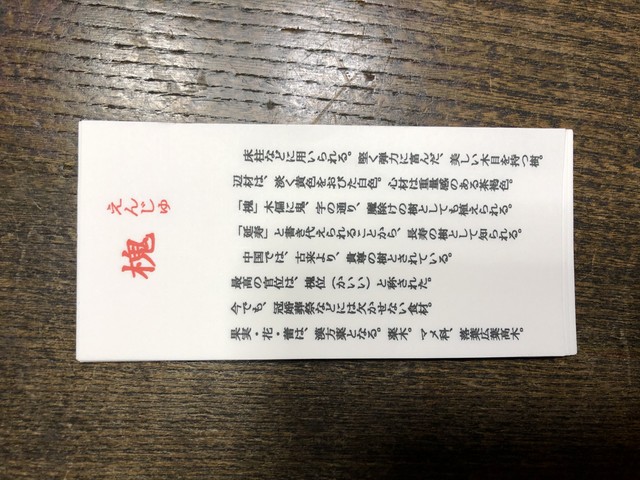 えんじゅ
槐
床柱などに用いられる。堅く弾力に富んだ、美しい木目を持つ樹。
辺材は、淡く黄色をおびた白色。心材は重量感のある茶褐色。
「槐」木偏に鬼、字の通り、魔除けの樹としても植えられる。
「延寿」と書き代えられることから、長寿の樹として知られる。
中国では、古来より、貴尊の樹とされている。
最高の官位は、槐位（かいい）と称された。
今でも、冠婚葬祭などには欠かせない食材。
果実・花・蕾は、漢方薬となる。薬木。マメ科、落葉広葉高木。